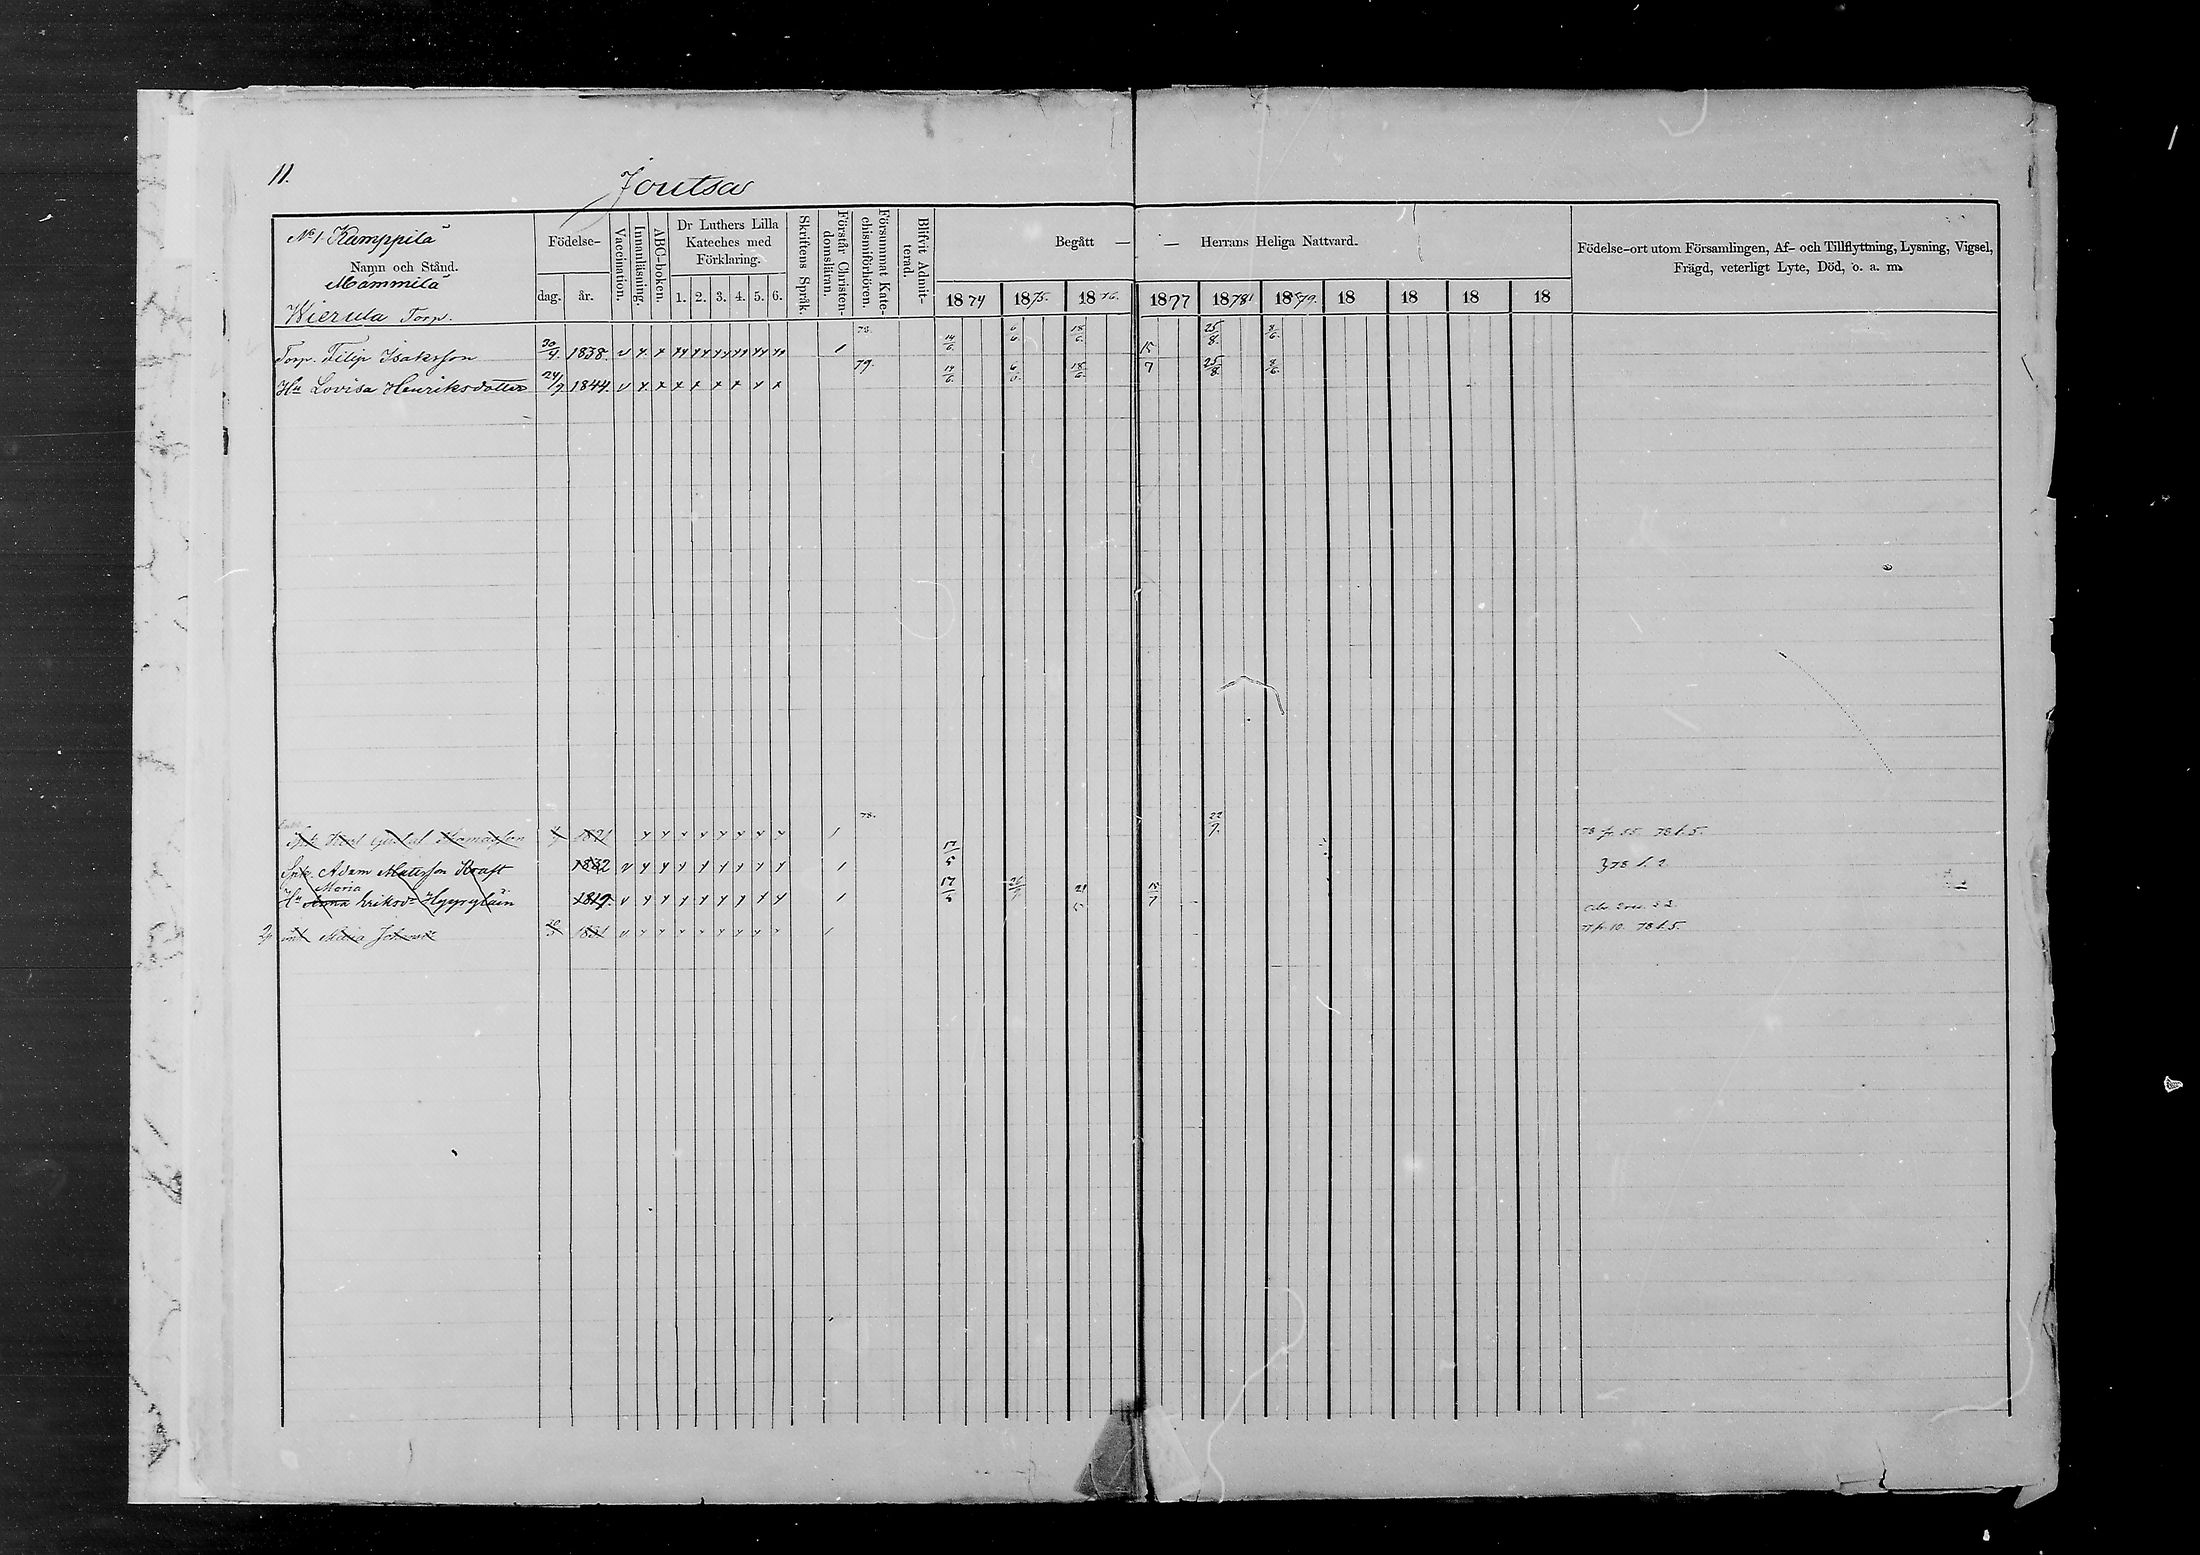 11.
Joutsa
No 1 Kamppilä
Namn och Stånd.
Mammila
Wierula Torp.
Födelse-
dag. år.
Vaccination.
Innanläsning.
ABC-boken.
Dr Luthers Lilla
Kateches med
Förklaring.
1. 2. 3. 4. 5. 6.
Skriftens Språk.
Förstår Christen-
domsläran.
Försummat Kate-
chismiförhören.
Blifvit Admit-
terad.
Begått — — Herrans Heliga Nattvard.
1874 1875. 1876. 1877 1878 1879. 18 18 18 18
Födelse-ort utom Församlingen, Af- och Tillflyttning, Lysning, Vigsel,
Frägd, veterligt Lyte, Död, o. a. m.
Torp. Filip Isaksson 30/4 1838. v x x 1 78. 14/6 6/6 18/6 15/7 25/8 8/6
Hu Lovisa Henriksdotter 24/9 1844. v x x x x x x x x 79. 14/6 6/6 18/6 25/8 8/6
Gustaf Thomasson 1821 1 78. 22/9. 78 fr 55 78 t. 5.
Spk. Adam Mattsson Kraft 1832 v 1 17/5 78 t. 2
Maria
Hu Anna Eriksdr Hyyryläin 1819. v 1 17/5 15/7
Maria Johansdr 1831 v 1 77 fr. 10. 78 t. 5